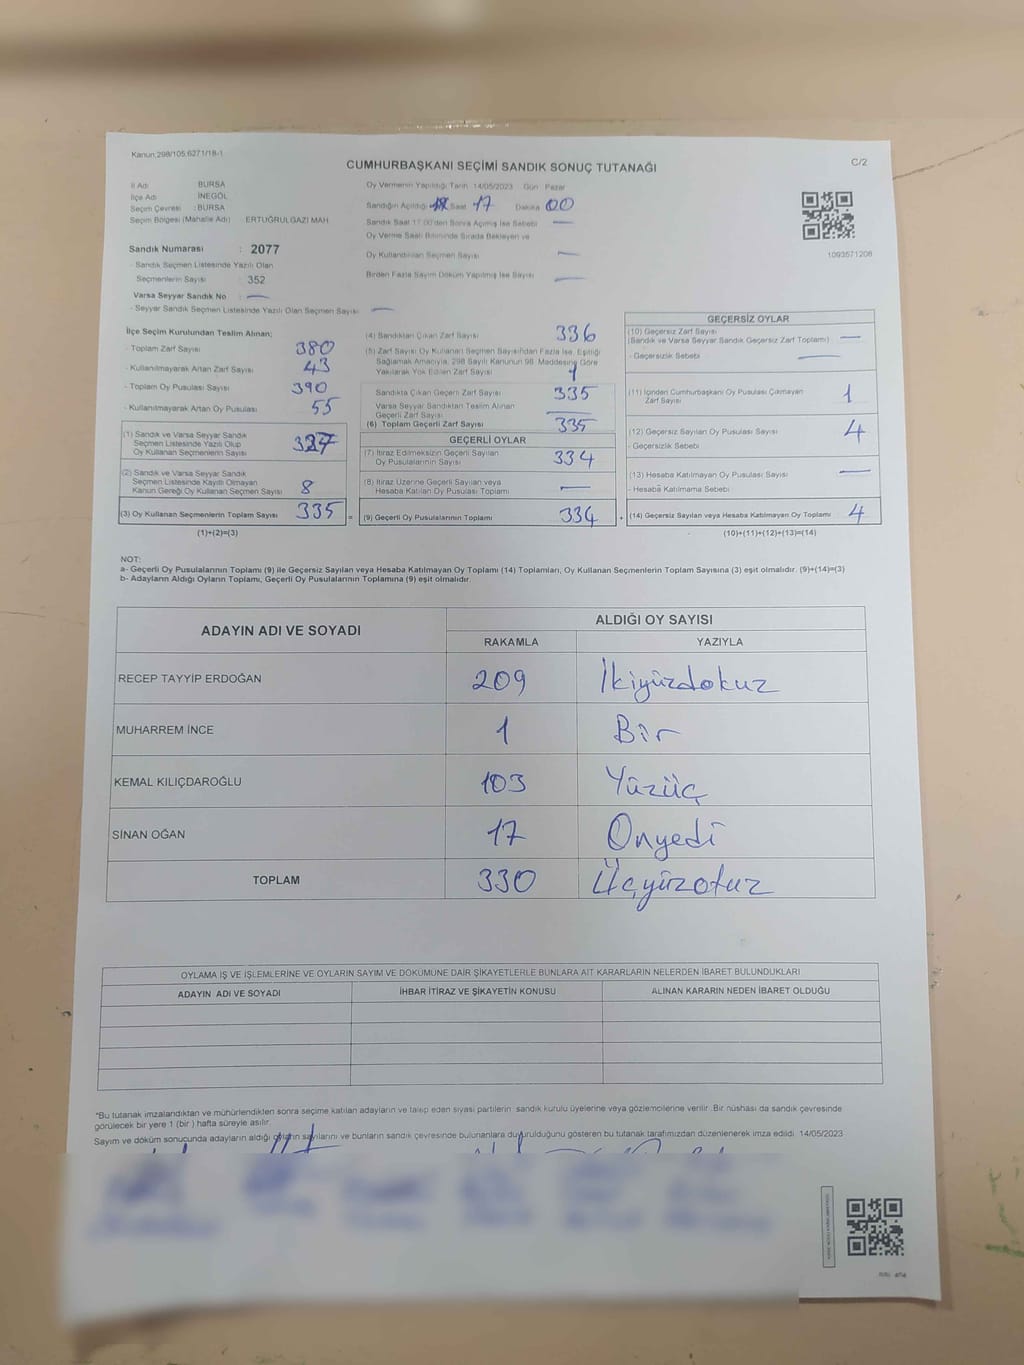 Kanun;298/105;6271/18-1
CUMHURBAŞKANI SEÇİMİ SANDIK SONUÇ TUTANAĞI
C/2
İl Adı BURSA
İlçe Adı İNEGÖL
Seçim Çevresi : BURSA
Seçim Bölgesi (Mahalle Adı) ERTUĞRULGAZİ MAH.
Sandık Numarası : 2077
- Sandık Seçmen Listesinde Yazılı Olan
Seçmenlerin Sayısı 352
Varsa Seyyar Sandık No : —
- Seyyar Sandık Seçmen Listesinde Yazılı Olan Seçmen Sayısı —
Oy Vermenin Yapıldığı Tarih 14/05/2023 Gün Pazar
Sandığın Açıldığı Saat 17 Dakika 00
Sandık Saat 17.00'den Sonra Açılmış İse Sebebi —
Oy Verme Saati Bitiminde Sırada Bekleyen ve
Oy Kullandırılan Seçmen Sayısı —
Birden Fazla Sayım Döküm Yapılmış İse Sayısı —
1093571206
İlçe Seçim Kurulundan Teslim Alınan;
- Toplam Zarf Sayısı 380
- Kullanılmayarak Artan Zarf Sayısı 43
- Toplam Oy Pusulası Sayısı 390
- Kullanılmayarak Artan Oy Pusulası 55
(1) Sandık ve Varsa Seyyar Sandık
Seçmen Listesinde Yazılı Olup
Oy Kullanan Seçmenlerin Sayısı 327
(2) Sandık ve Varsa Seyyar Sandık
Seçmen Listesinde Kayıtlı Olmayan
Kanun Gereği Oy Kullanan Seçmen Sayısı 8
(3) Oy Kullanan Seçmenlerin Toplam Sayısı 335
(1)+(2)=(3)
(4) Sandıktan Çıkan Zarf Sayısı 336
(5) Zarf Sayısı Oy Kullanan Seçmen Sayısından Fazla İse, Eşitliği
Sağlamak Amacıyla, 298 Sayılı Kanunun 98. Maddesine Göre
Yakılarak Yok Edilen Zarf Sayısı 1
Sandıkta Çıkan Geçerli Zarf Sayısı 335
Varsa Seyyar Sandıktan Teslim Alınan
Geçerli Zarf Sayısı —
(6) Toplam Geçerli Zarf Sayısı 335
GEÇERLİ OYLAR
(7) İtiraz Edilmeksizin Geçerli Sayılan
Oy Pusulalarının Sayısı 334
(8) İtiraz Üzerine Geçerli Sayılan veya
Hesaba Katılan Oy Pusulası Toplamı —
(9) Geçerli Oy Pusulalarının Toplamı 334
GEÇERSİZ OYLAR
(10) Geçersiz Zarf Sayısı
(Sandık ve Varsa Seyyar Sandık Geçersiz Zarf Toplamı) —
- Geçersizlik Sebebi —
(11) İçinden Cumhurbaşkanı Oy Pusulası Çıkmayan
Zarf Sayısı 1
(12) Geçersiz Sayılan Oy Pusulası Sayısı 4
- Geçersizlik Sebebi
(13) Hesaba Katılmayan Oy Pusulası Sayısı —
- Hesaba Katılmama Sebebi
(14) Geçersiz Sayılan veya Hesaba Katılmayan Oy Toplamı 4
(10)+(11)+(12)+(13)=(14)
NOT:
a- Geçerli Oy Pusulalarının Toplamı (9) ile Geçersiz Sayılan veya Hesaba Katılmayan Oy Toplamı (14) Toplamları, Oy Kullanan Seçmenlerin Toplam Sayısına (3) eşit olmalıdır. (9)+(14)=(3)
b- Adayların Aldığı Oyların Toplamı, Geçerli Oy Pusulalarının Toplamına (9) eşit olmalıdır.
ADAYIN ADI VE SOYADI ALDIĞI OY SAYISI
RAKAMLA YAZIYLA
RECEP TAYYİP ERDOĞAN 209 İkiyüzdokuz
MUHARREM İNCE 1 Bir
KEMAL KILIÇDAROĞLU 103 Yüzüç
SİNAN OĞAN 17 Onyedi
TOPLAM 330 Üçyüzotuz
OYLAMA İŞ VE İŞLEMLERİNE VE OYLARIN SAYIM VE DÖKÜMÜNE DAİR ŞİKAYETLERLE BUNLARA AİT KARARLARIN NELERDEN İBARET BULUNDUKLARI
ADAYIN ADI VE SOYADI İHBAR İTİRAZ VE ŞİKAYETİN KONUSU ALINAN KARARIN NEDEN İBARET OLDUĞU
*Bu tutanak imzalandıktan ve mühürlendikten sonra seçime katılan adayların ve talep eden siyasi partilerin sandık kurulu üyelerine veya gözlemcilerine verilir. Bir nüshası da sandık çevresinde
görülecek bir yere 1 (bir) hafta süreyle asılır.
Sayım ve döküm sonucunda adayların aldığı oyların sayılarını ve bunların sandık çevresinde bulunanlara duyurulduğunu gösteren bu tutanak tarafımızdan düzenlenerek imza edildi. 14/05/2023